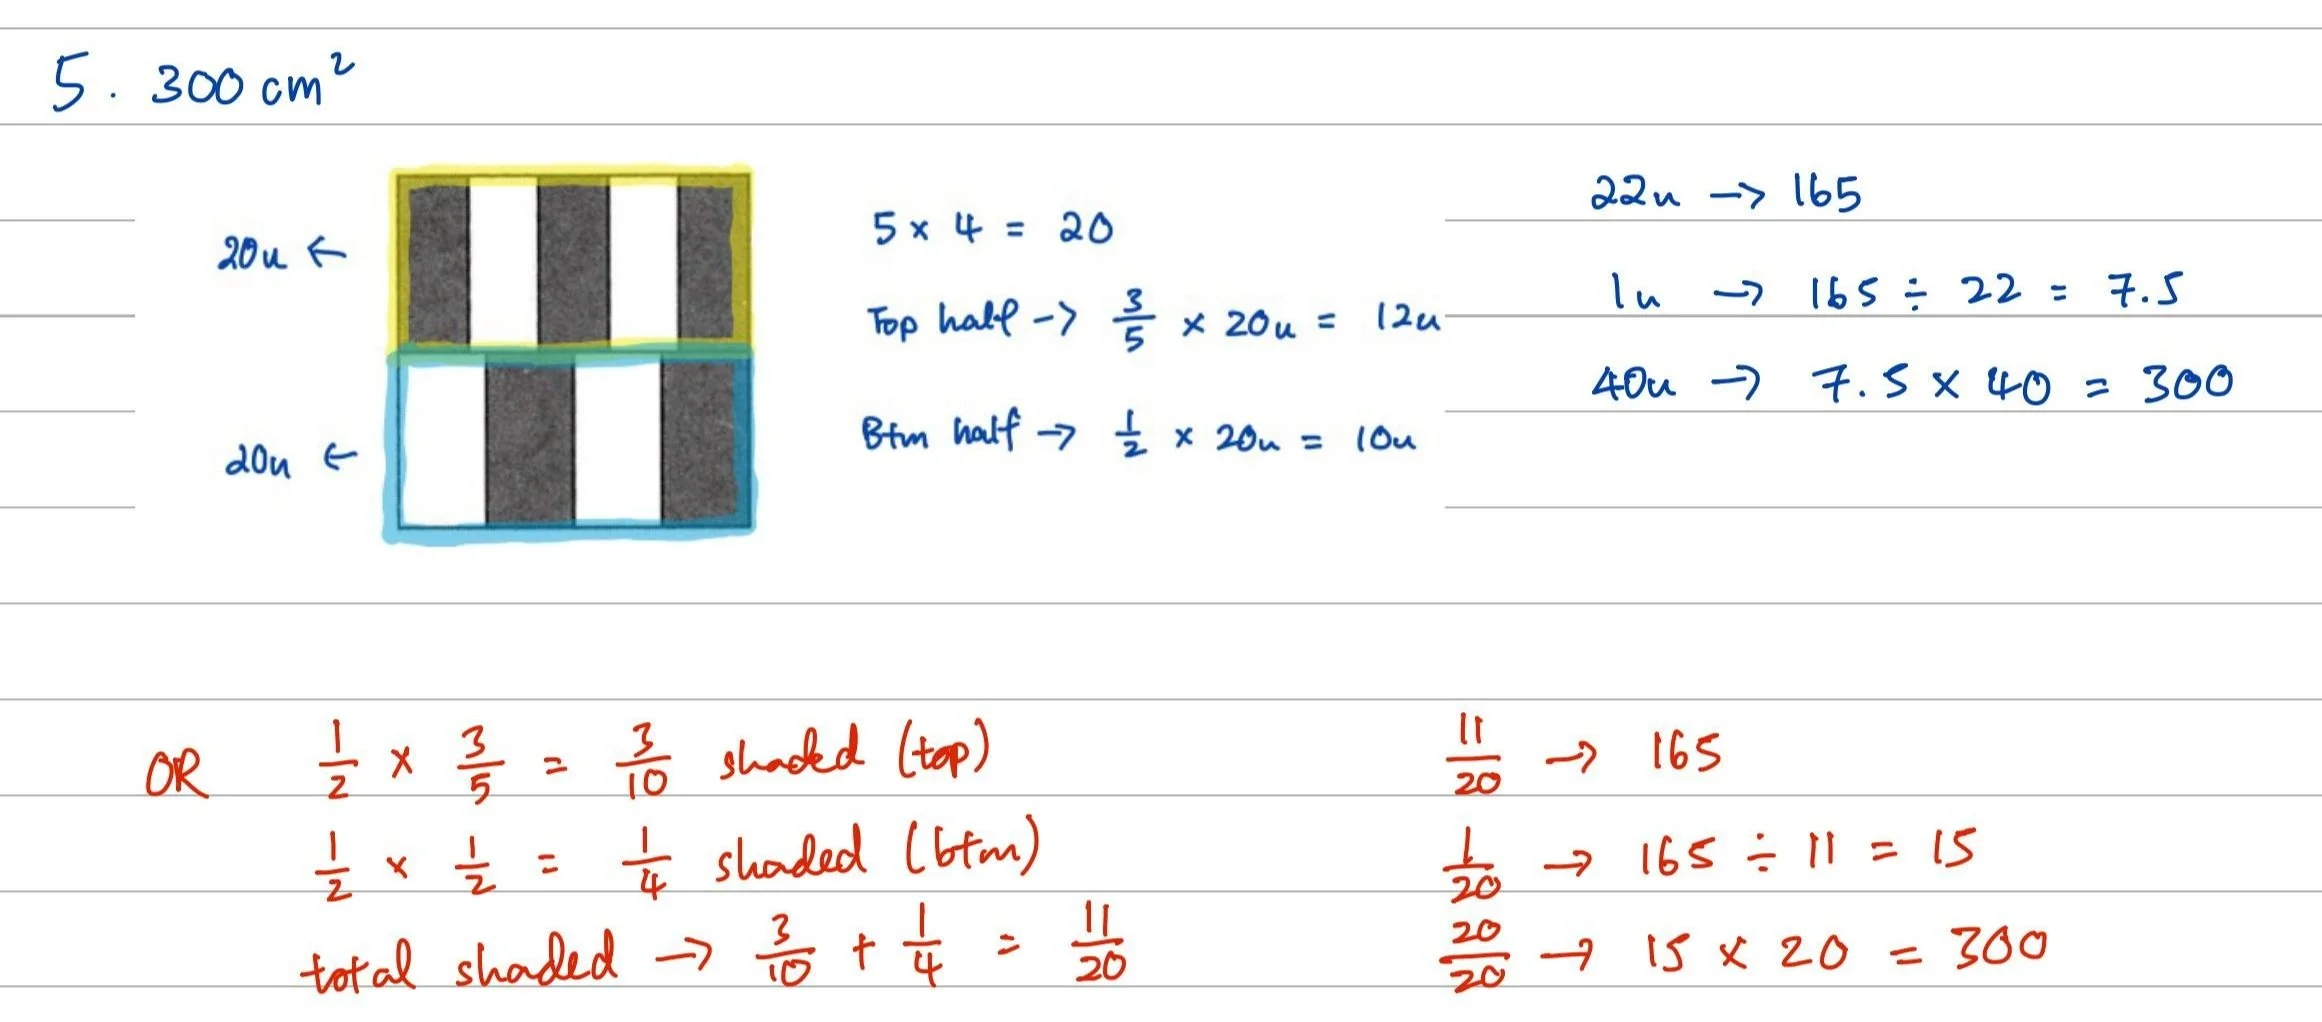 5. 300 cm²
20u ←
20u ←
5 × 4 = 20
Top half → 3/5 × 20u = 12u
Btm half → 1/2 × 20u = 10u
22u → 165
1u → 165 ÷ 22 = 7.5
40u → 7.5 × 40 = 300
OR 1/2 × 3/5 = 3/10 shaded (top)
1/2 × 1/2 = 1/4 shaded (btm)
total shaded → 3/10 + 1/4 = 11/20
11/20 → 165
1/20 → 165 ÷ 11 = 15
20/20 → 15 × 20 = 300